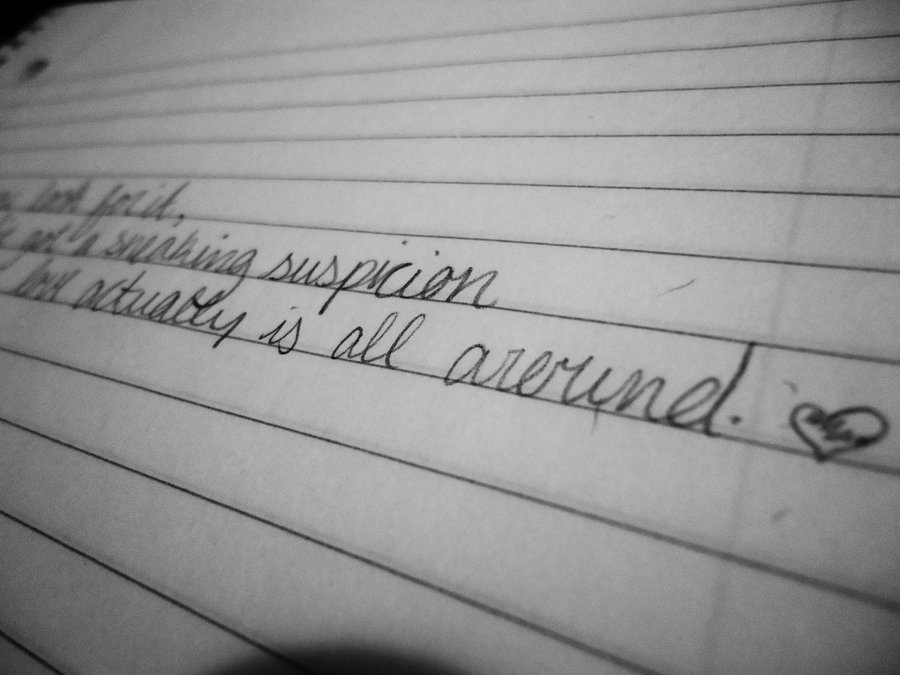 look for it,
got a sneaking suspicion
love actually is all around.